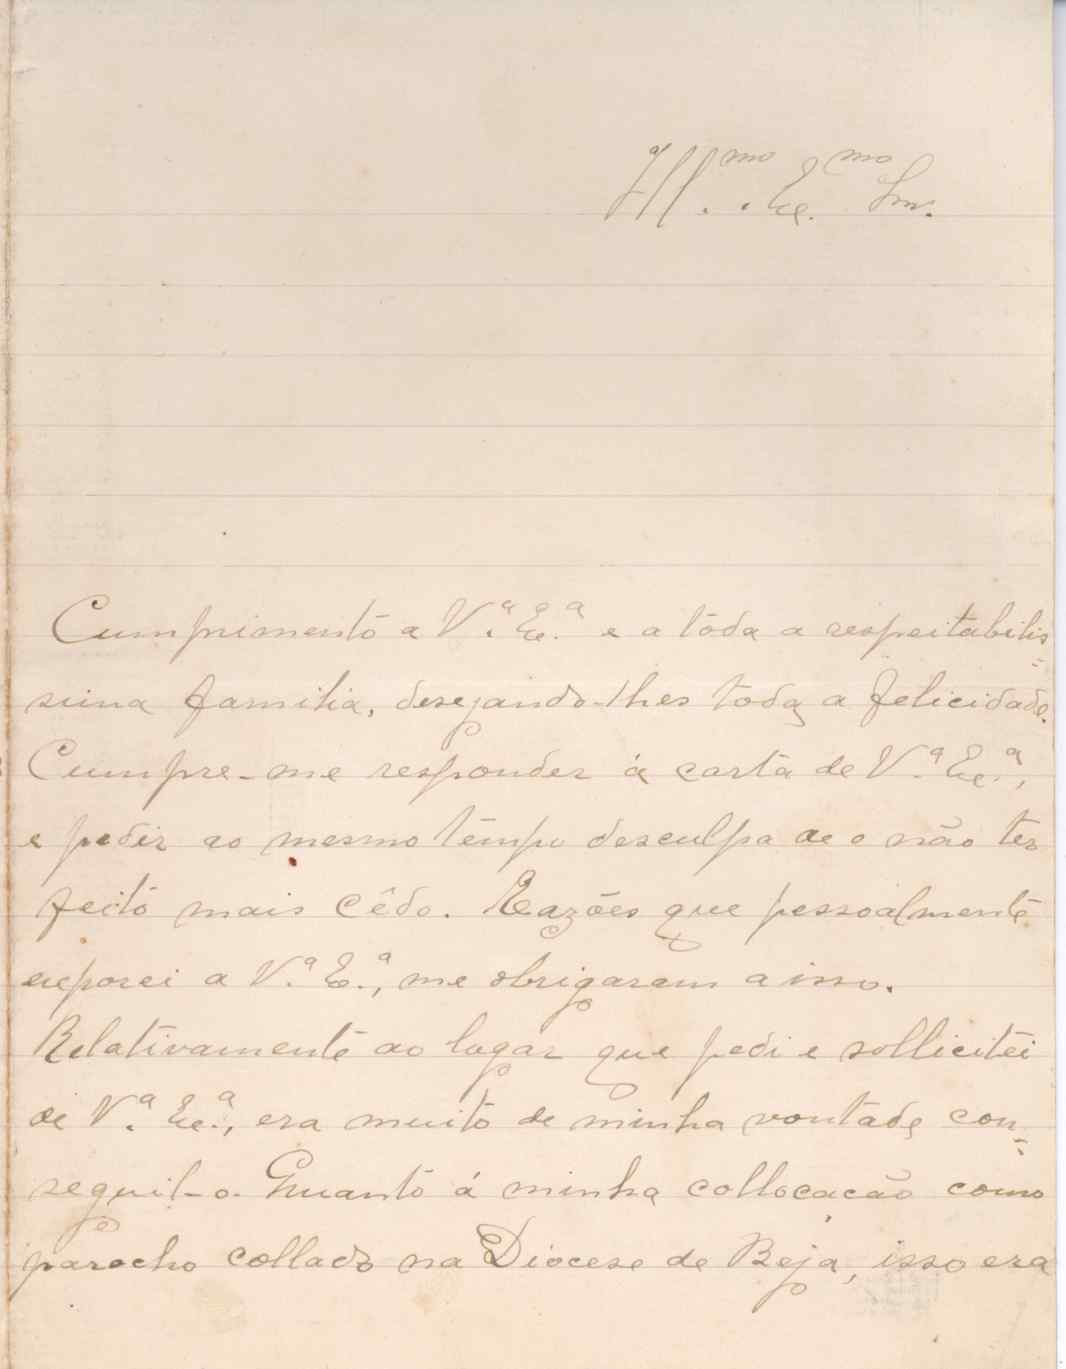 Ill.mo. Exc.mo Snr.
Cumprimento a V.ª Exc.ª e a tôda a respeitabilis=
sima familia, desejando-lhes toda a felicidade.
Cumpre-me responder á carta de V.ª Exc.ª,
e pedir ao mesmo têmpo desculpa de o não ter
feito mais cêdo. Razões que pessoalmente
exporei a V.ª E.ª, me obrigaram a isso.
Relativamente ao logar que pedi e sollicitei
de V.ª Exc.ª, era muito de minha vontade con=
seguil-o. Quanto á minha collocação como
parocho collado na Diocese de Beja, isso era